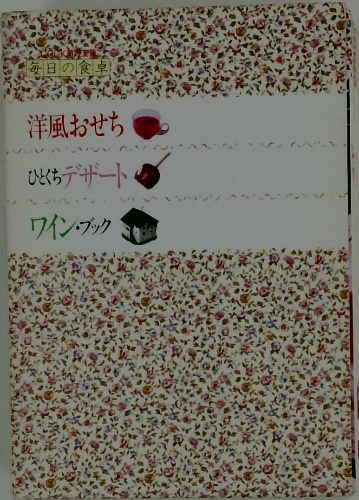 毎日の食卓
洋風おせち
ひとくちデザート
ワイン・ブック